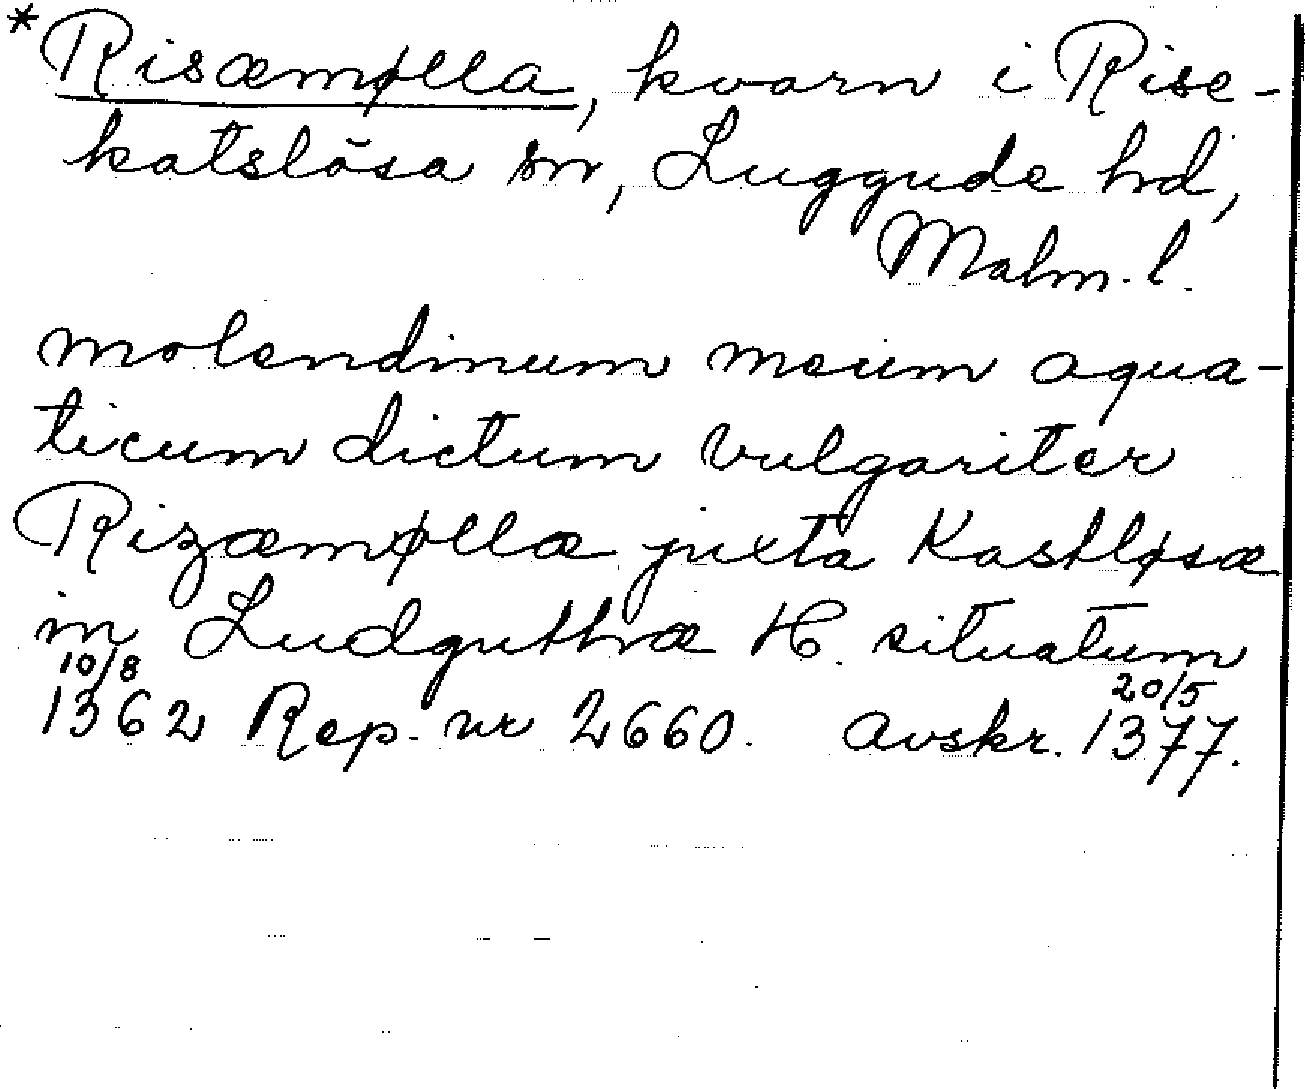 *Risæmølla, kvarn i Rise-
katslösa sn, Luggude hd,
Malm. l.
molendinum meum aqua-
ticum dictum vulgariter
Rizæmøllæ juxta Kastløsæ
in Ludguthræ H. situatum
10/8 20/5
1362 Rep. nr 2660. avskr. 1377.